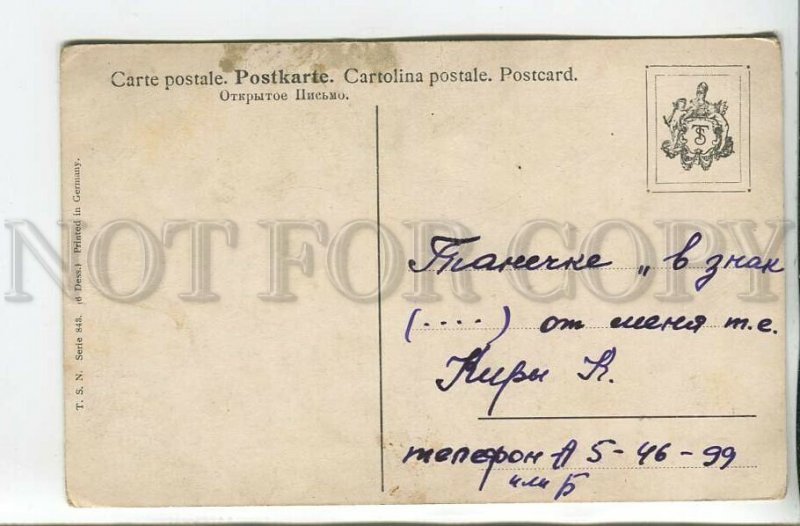 Carte postale. Postkarte. Cartolina postale. Postcard.
Открытое Письмо.
T. S. N. Serie 843. (6 Dess.) Printed in Germany.
NOT FOR COPY
Танечке „ в знак
(....) от меня т.е.
Киры К.
телефон А 5-46-99
или Б